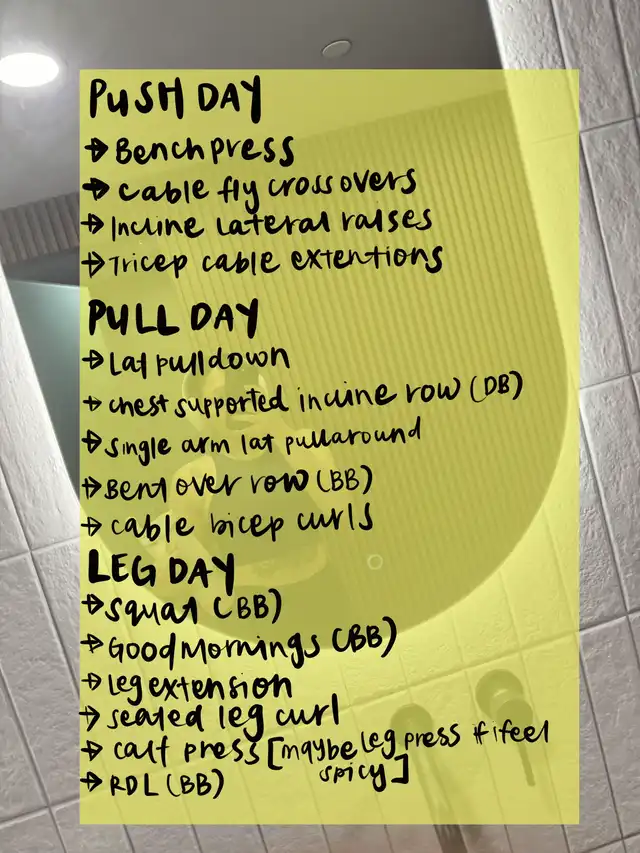 PUSH DAY
→ Bench press
→ cable fly crossovers
→ Incline lateral raises
→ Tricep cable extentions
PULL DAY
→ Lat pulldown
→ chest supported incline row (DB)
→ single arm lat pullaround
→ Bent over row (BB)
→ cable bicep curls
LEG DAY
→ squat (BB)
→ Good Mornings (BB)
→ leg extension
→ seated leg curl
→ calf press [maybe leg press if i feel
spicy]
→ RDL (BB)